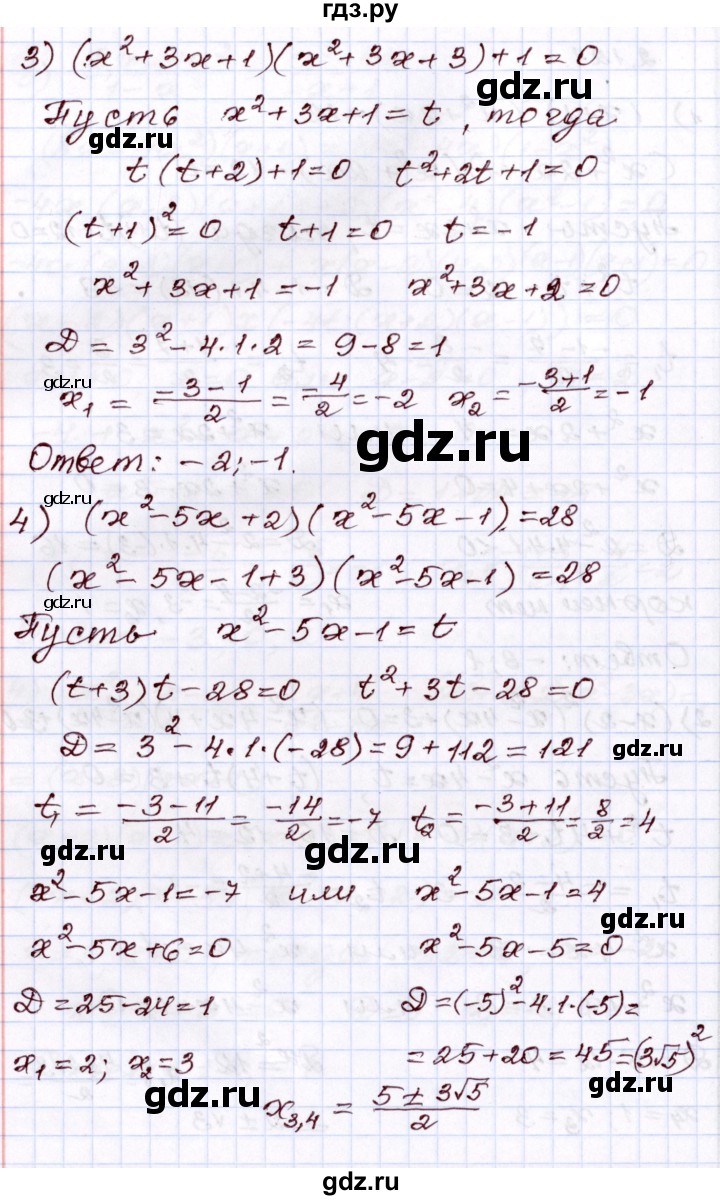 гдз.ру
3) (x²+3x+1)(x²+3x+3)+1=0
gdz.ru
Пусть x²+3x+1=t, тогда
gdz.ru
t(t+2)+1=0 t²+2t+1=0
gdz.ru
(t+1)²=0 t+1=0 t=-1
x²+3x+1=-1 x²+3x+2=0
D=3²-4·1·2=9-8=1
gdz.ru
x₁=(-3-1)/2=-4/2=-2 x₂=(-3+1)/2=-1
gdz.ru
Ответ: -2; -1.
gdz.ru
4) (x²-5x+2)(x²-5x-1)=28
(x²-5x-1+3)(x²-5x-1)=28
gdz.ru
Пусть x²-5x-1=t
(t+3)t-28=0 t²+3t-28=0
D=3²-4·1·(-28)=9+112=121
gdz.ru
t₁=(-3-11)/2=-14/2=-7 t₂=(-3+11)/2=8/2=4
gdz.ru
x²-5x-1=-7 или x²-5x-1=4
gdz.ru
x²-5x+6=0 x²-5x-5=0
D=25-24=1 D=(-5)²-4·1·(-5)=
x₁=2; x₂=3 =25+20=45=(3√5)²
gdz.ru
x₃,₄=(5±3√5)/2
gdz.ru
gdz.ru